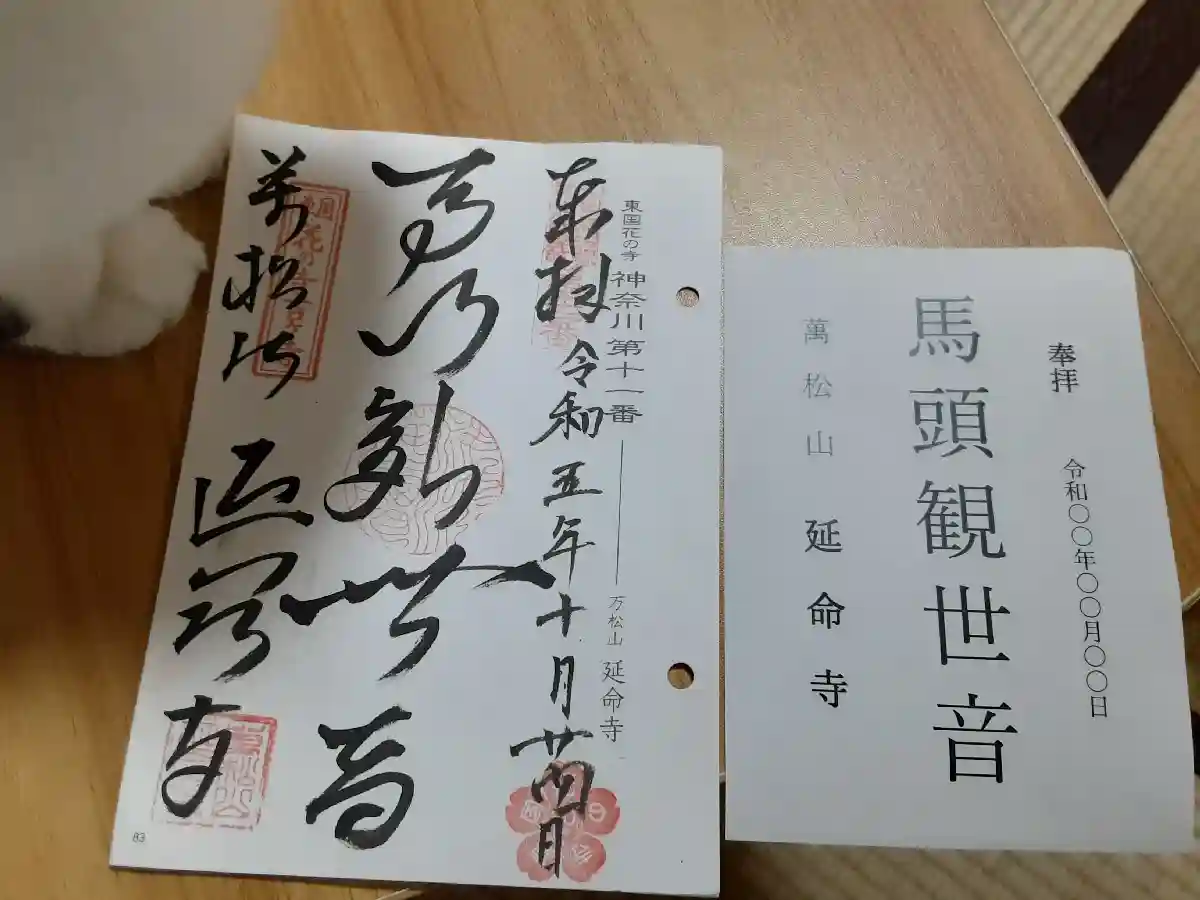 奉拝 令和〇〇年〇〇月〇〇日
馬頭観世音
萬松山 延命寺
東国花の寺 神奈川第十一番 万松山 延命寺
奉拝 令和五年十月廿四日
馬頭観世音
萬松山 延命寺
83